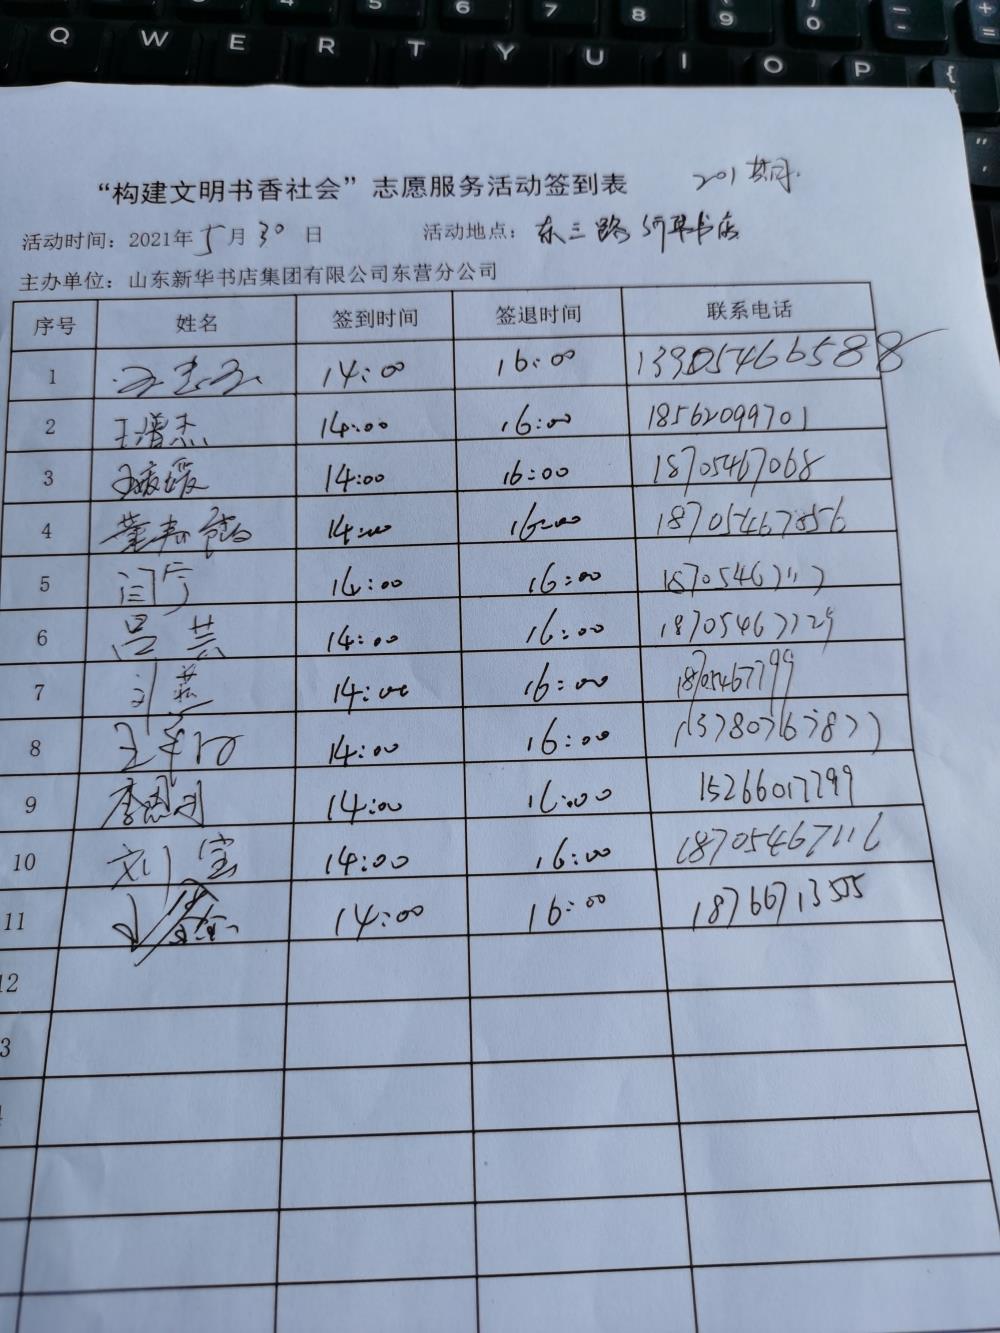 Q W E R T Y U I O P {
5 6 7 8 9 0 - =
“构建文明书香社会”志愿服务活动签到表 201期
活动时间：2021年5月30日 活动地点：东三路新华书店
主办单位：山东新华书店集团有限公司东营分公司
序号 姓名 签到时间 签退时间 联系电话
1 14:00 16:00 13905466588
2 王增杰 14:00 16:00 18562099701
3 14:00 16:00 18705467068
4 14:00 16:00 18705467856
5 闫宁 14:00 16:00
6 吕芸 14:00 16:00 18705467729
7 刘燕 14:00 16:00 18705467799
8 14:00 16:00
9 14:00 16:00 15266017799
10 刘宝 14:00 16:00 18705467116
11 14:00 16:00 18766713555
12
3